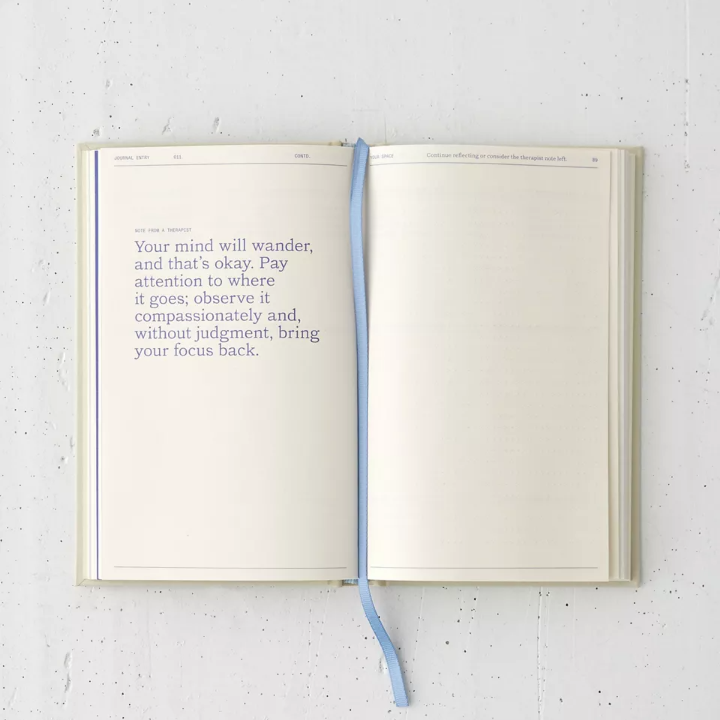 JOURNAL ENTRY
CONTD.
YOUR SPACE
Continue reflecting or consider the therapist note left.
NOTE FROM A THERAPIST
Your mind will wander,
and that's okay. Pay
attention to where
it goes; observe it
compassionately and,
without judgment, bring
your focus back.